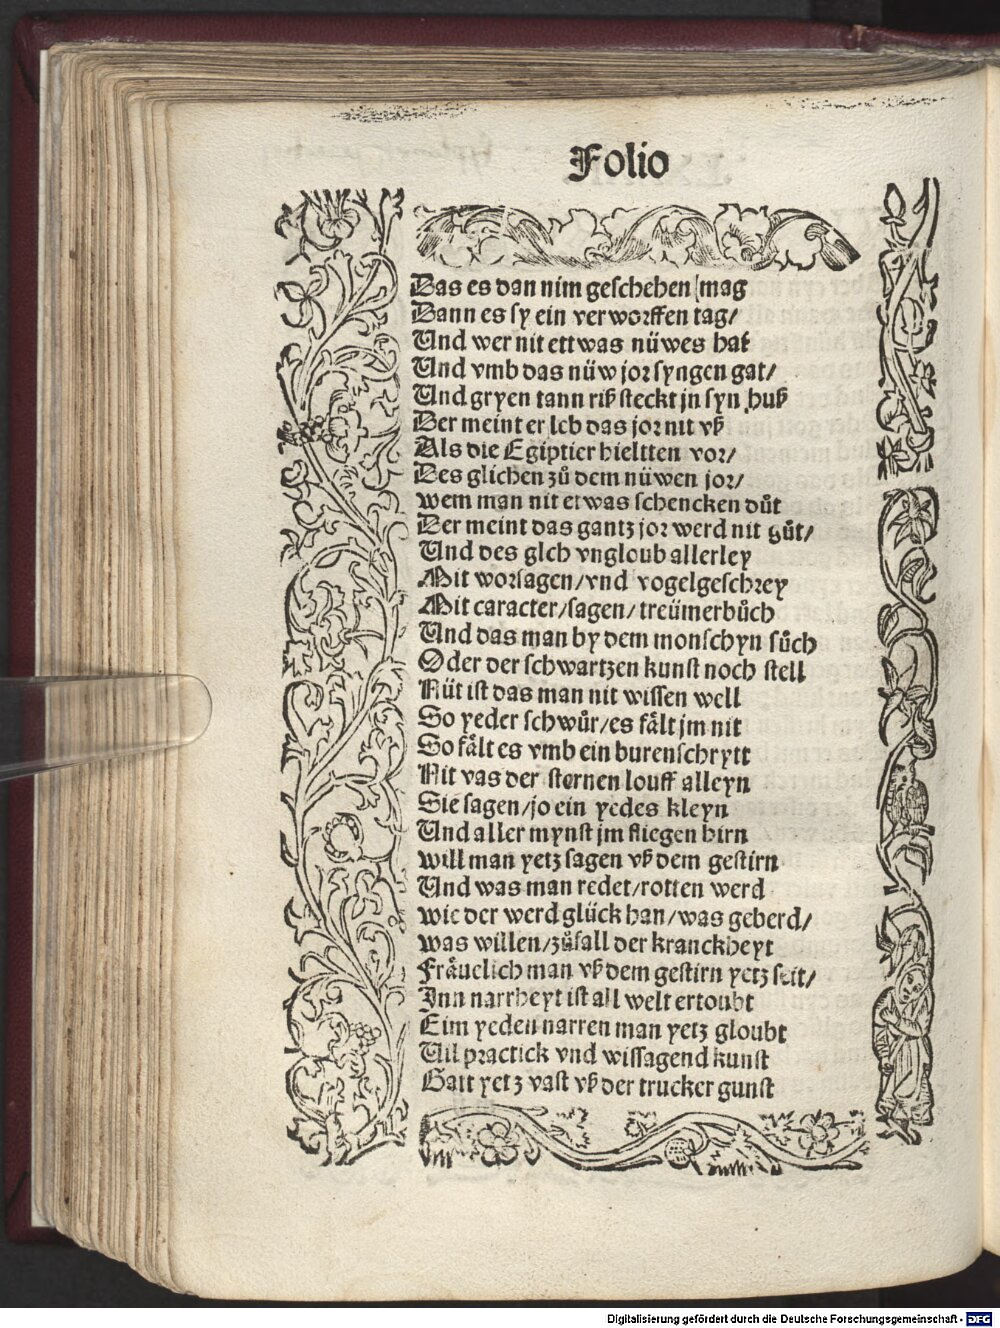 Folio
Das es dan nim geschehen mag
Dann es sy ein verworffen tag/
Und wer nit ettwas nüwes hat
Und vmb das nüw jor syngen gat/
Und gryen tann riß steckt jn syn huß
Der meint er leb das jor nit vß
Als die Egiptier hieltten vor/
Des glichen zů dem nüwen jor/
wem man nit etwas schencken důt
Der meint das gantz jor werd nit gůt/
Und des glch vngloub allerley
Mit worsagen/vnd vogelgeschrey
Mit caracter/sagen/treümerbůch
Und das man by dem monschyn sůch
Oder der schwartzen kunst noch stell
Nüt ist das man nit wissen well
So yeder schwůr/es fält jm nit
So fält es vmb ein burenschrytt
Nit vas der sternen louff alleyn
Sie sagen/jo ein yedes kleyn
Und aller mynst jm fliegen hirn
will man yetz sagen vß dem gestirn
Und was man redet/rotten werd
wie der werd glück han/was geberd/
was willen/zůfall der kranckheyt
Fräuelich man vß dem gestirn yetz seit/
Inn narrheyt ist all welt ertoubt
Eim yeden narren man yetz gloubt
Vil practick vnd wissagend kunst
Gatt yetz vast vß der trucker gunst
Digitalisierung gefördert durch die Deutsche Forschungsgemeinschaft - DFG